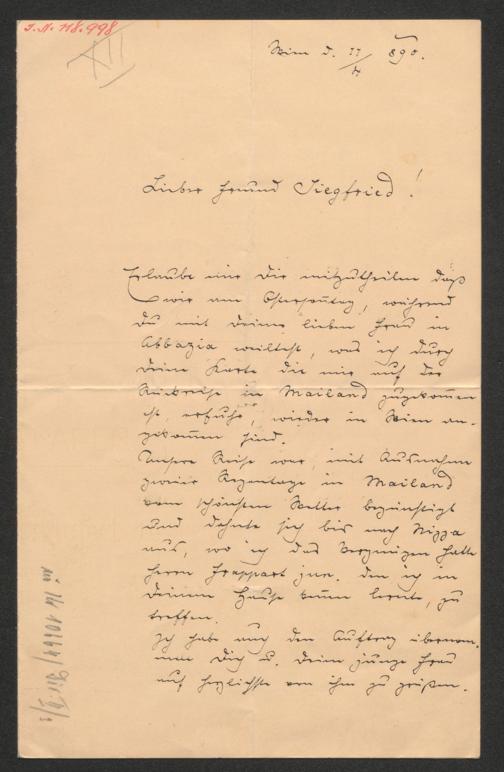 I.N. 118.998
XII
Wien d. 11/4 890.
Lieber Freund Siegfried!
Erlaube mir Dir mitzutheilen daß
wir am Ostersonntag, während
Du mit Deiner lieben Frau in
Abbazia weiltest, was ich durch
Deine Karte die mir auf der
Rückreise in Mailand zugekommen
ist, erfuhr, wieder in Wien an-
gekommen sind.
Unsere Reise war, mit Ausnahme
zweier Regentage in Mailand
vom schönsten Wetter begünstigt
und dehnte sich bis nach Nizza
aus, wo ich das Vergnügen hatte
Herrn Frappart jun. den ich in
Deinem Hause kennen lernte, zu
treffen.
Ich habe auch den Auftrag übernom-
men Dich u. Deine junge Frau
auf herzlichste von ihm zu grüßen.